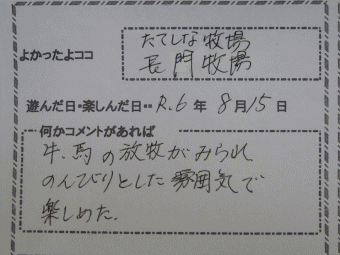 よかったよココ
たてしな牧場
長門牧場
遊んだ日・楽しんだ日・・R.6年 8月15日
何かコメントがあれば
牛.馬の放牧がみられ
のんびりとした雰囲気で
楽しめた.